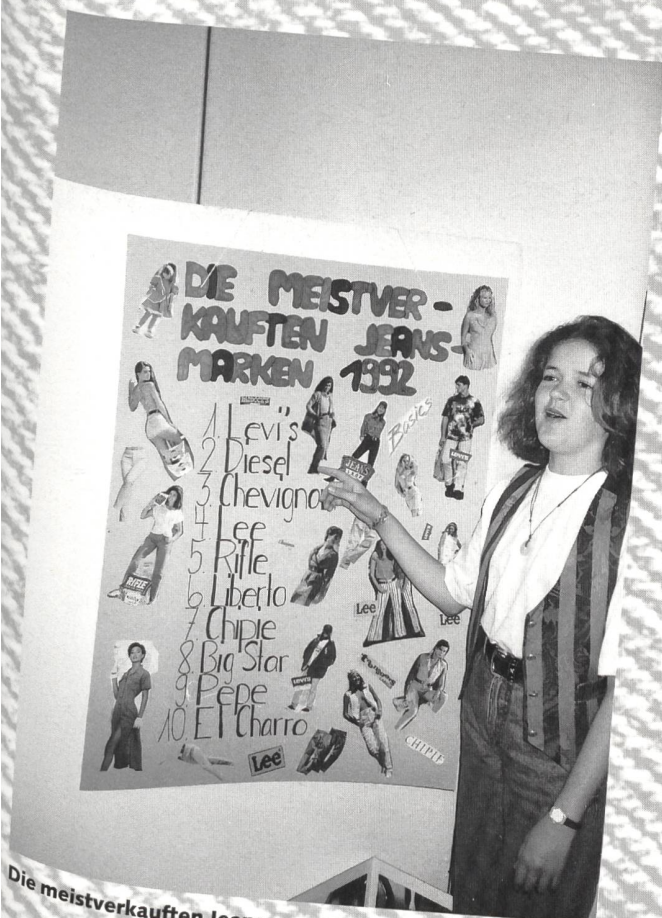 DIE MEISTVER-
KAUFTEN JEANS-
MARKEN 1992
1. Levi's
2. Diesel
3. Chevigno
4. Lee
5. Rifle
6. Liberto
7. Chipie
8. Big Star
9. Pepe
10. El Charro
Basics
JEANS
RIFLE
Lee
Lee
CHIPIE
Lee
Die meistverkauften